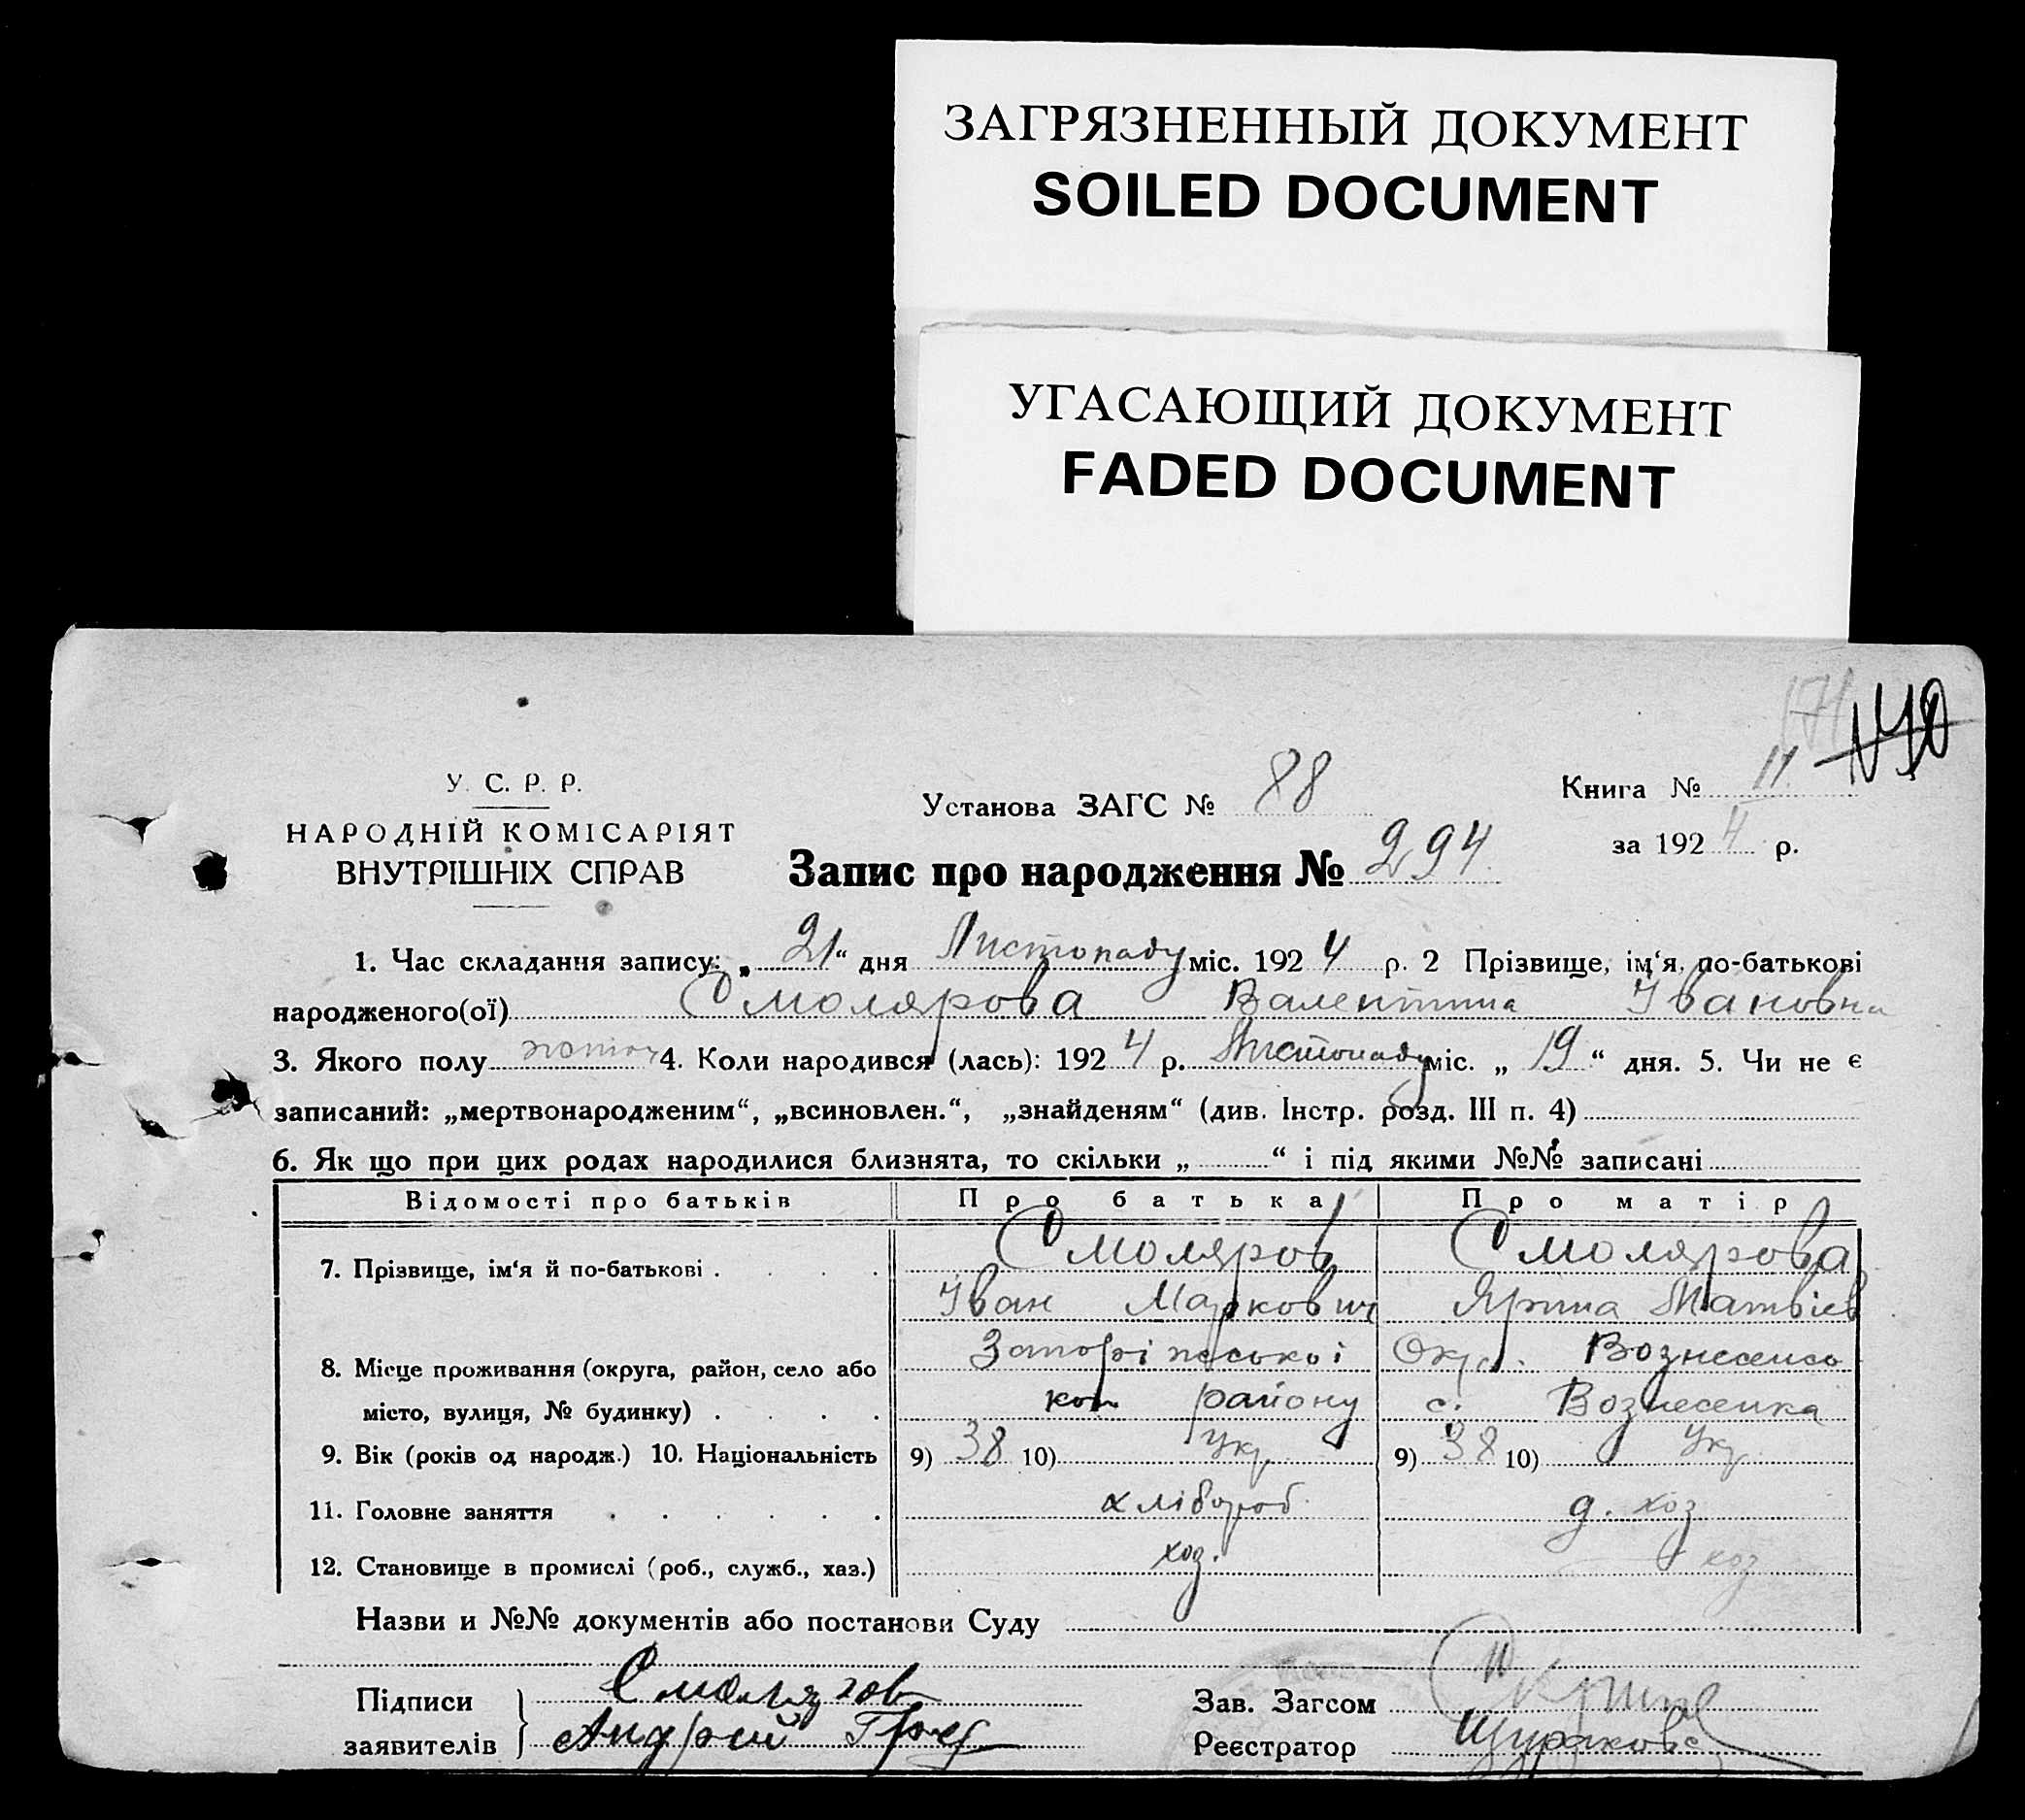 ЗАГРЯЗНЕННЫЙ ДОКУМЕНТ
SOILED DOCUMENT
УГАСАЮЩИЙ ДОКУМЕНТ
FADED DOCUMENT
У. С. Р. Р.
НАРОДНІЙ КОМІСАРІЯТ
ВНУТРІШНІХ СПРАВ
Установа ЗАГС № 88
Запис про народження № 294
Книга № 11
за 1924 р.
1. Час складання запису: „21“ дня Листопаду міс. 1924 р. 2 Прізвище, ім‘я, по-батькові
народженого(ої) Смолярова Валентина Івановна
3. Якого полу 4. Коли народився (лась): 1924 р. Листопаду міс. „19“ дня. 5. Чи не є
записаний: „мертвонародженим“, „всиновлен.“, „знайденям“ (див. Інстр. розд. III п. 4)
6. Як що при цих родах народилися близнята, то скільки „ “ і під якими №№ записані
Відомості про батьків Про батька Про матір
7. Прізвище, ім‘я й по-батькові Смоляров Смолярова
Іван Маркович Ярина Матвієв
8. Місце проживання (округа, район, село або Окр. Вознесенсь
місто, вулиця, № будинку) району с. Вознесенка
9. Вік (років од народж.) 10. Національність 9) 38 10) Укр. 9) 38 10) Укр.
11. Головне заняття хлібороб. д. хоз
12. Становище в промислі (роб., служб., хаз.) хоз. хоз
Назви и №№ документів або постанови Суду
Підписи Смоляров Зав. Загсом
заявителів Андрій Реєстратор